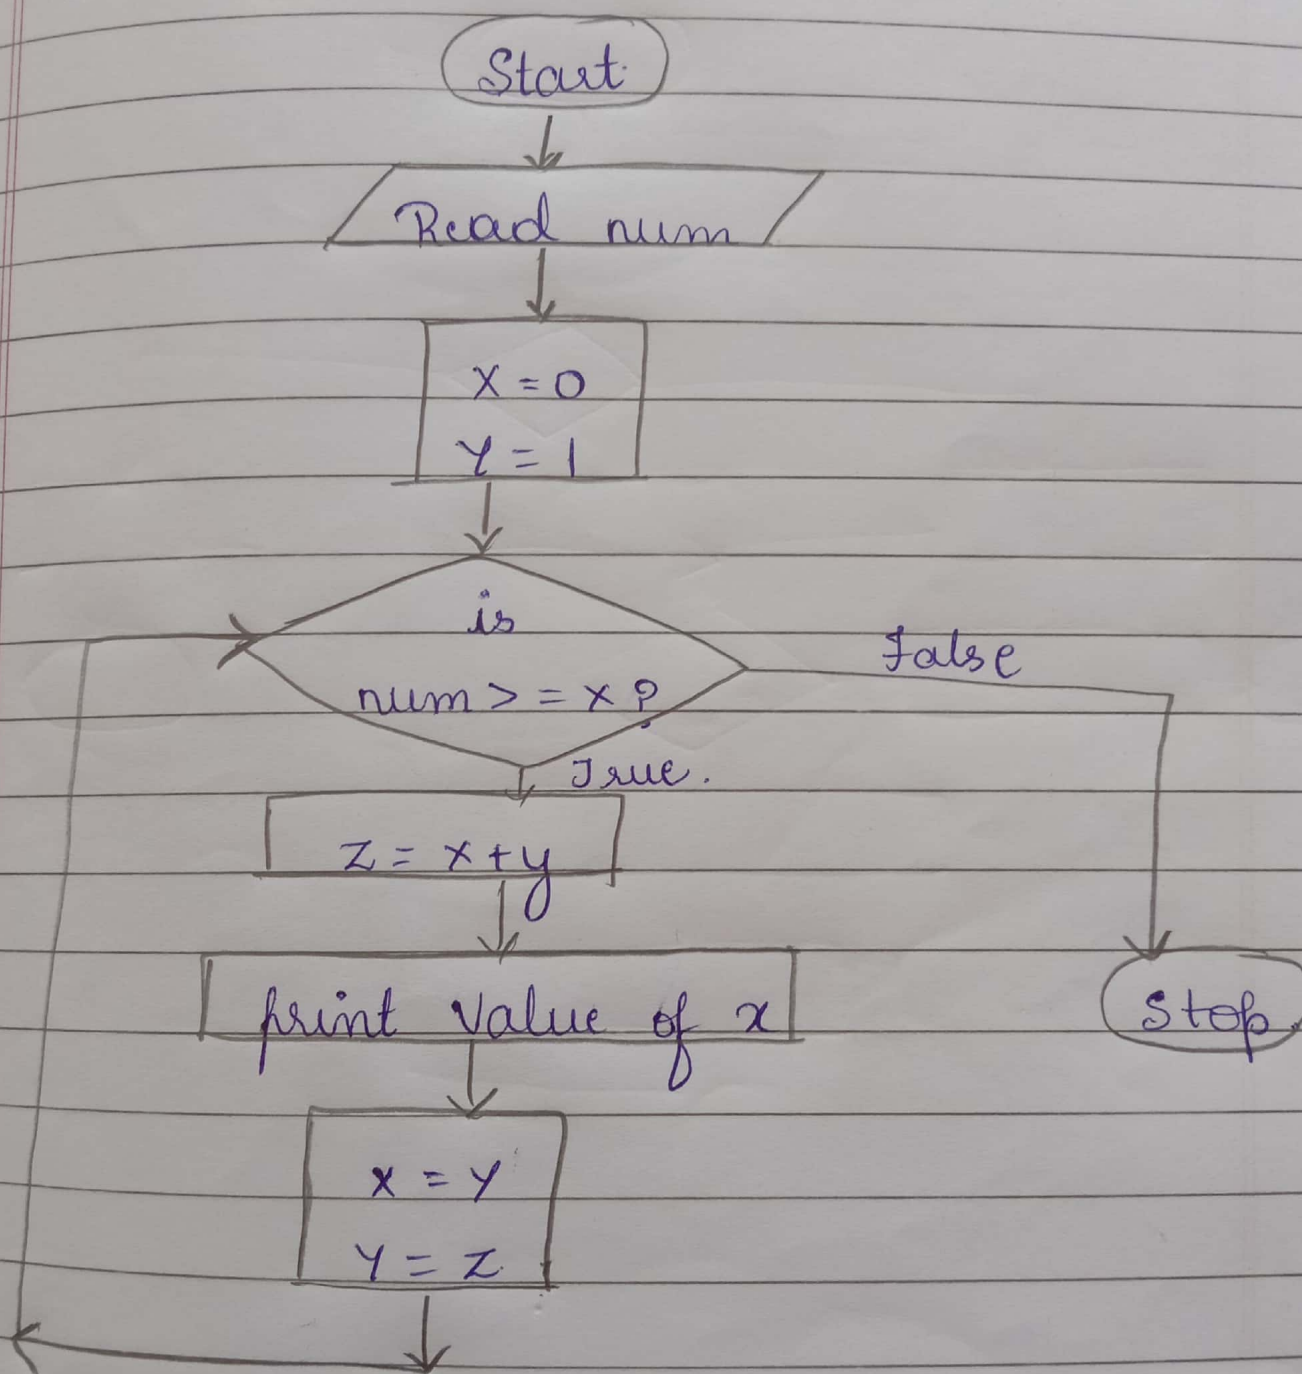 Start
Read num
X = 0
Y = 1
is
num > = x ?
False
True.
Z = x + y
print value of x
Stop
x = y
Y = Z